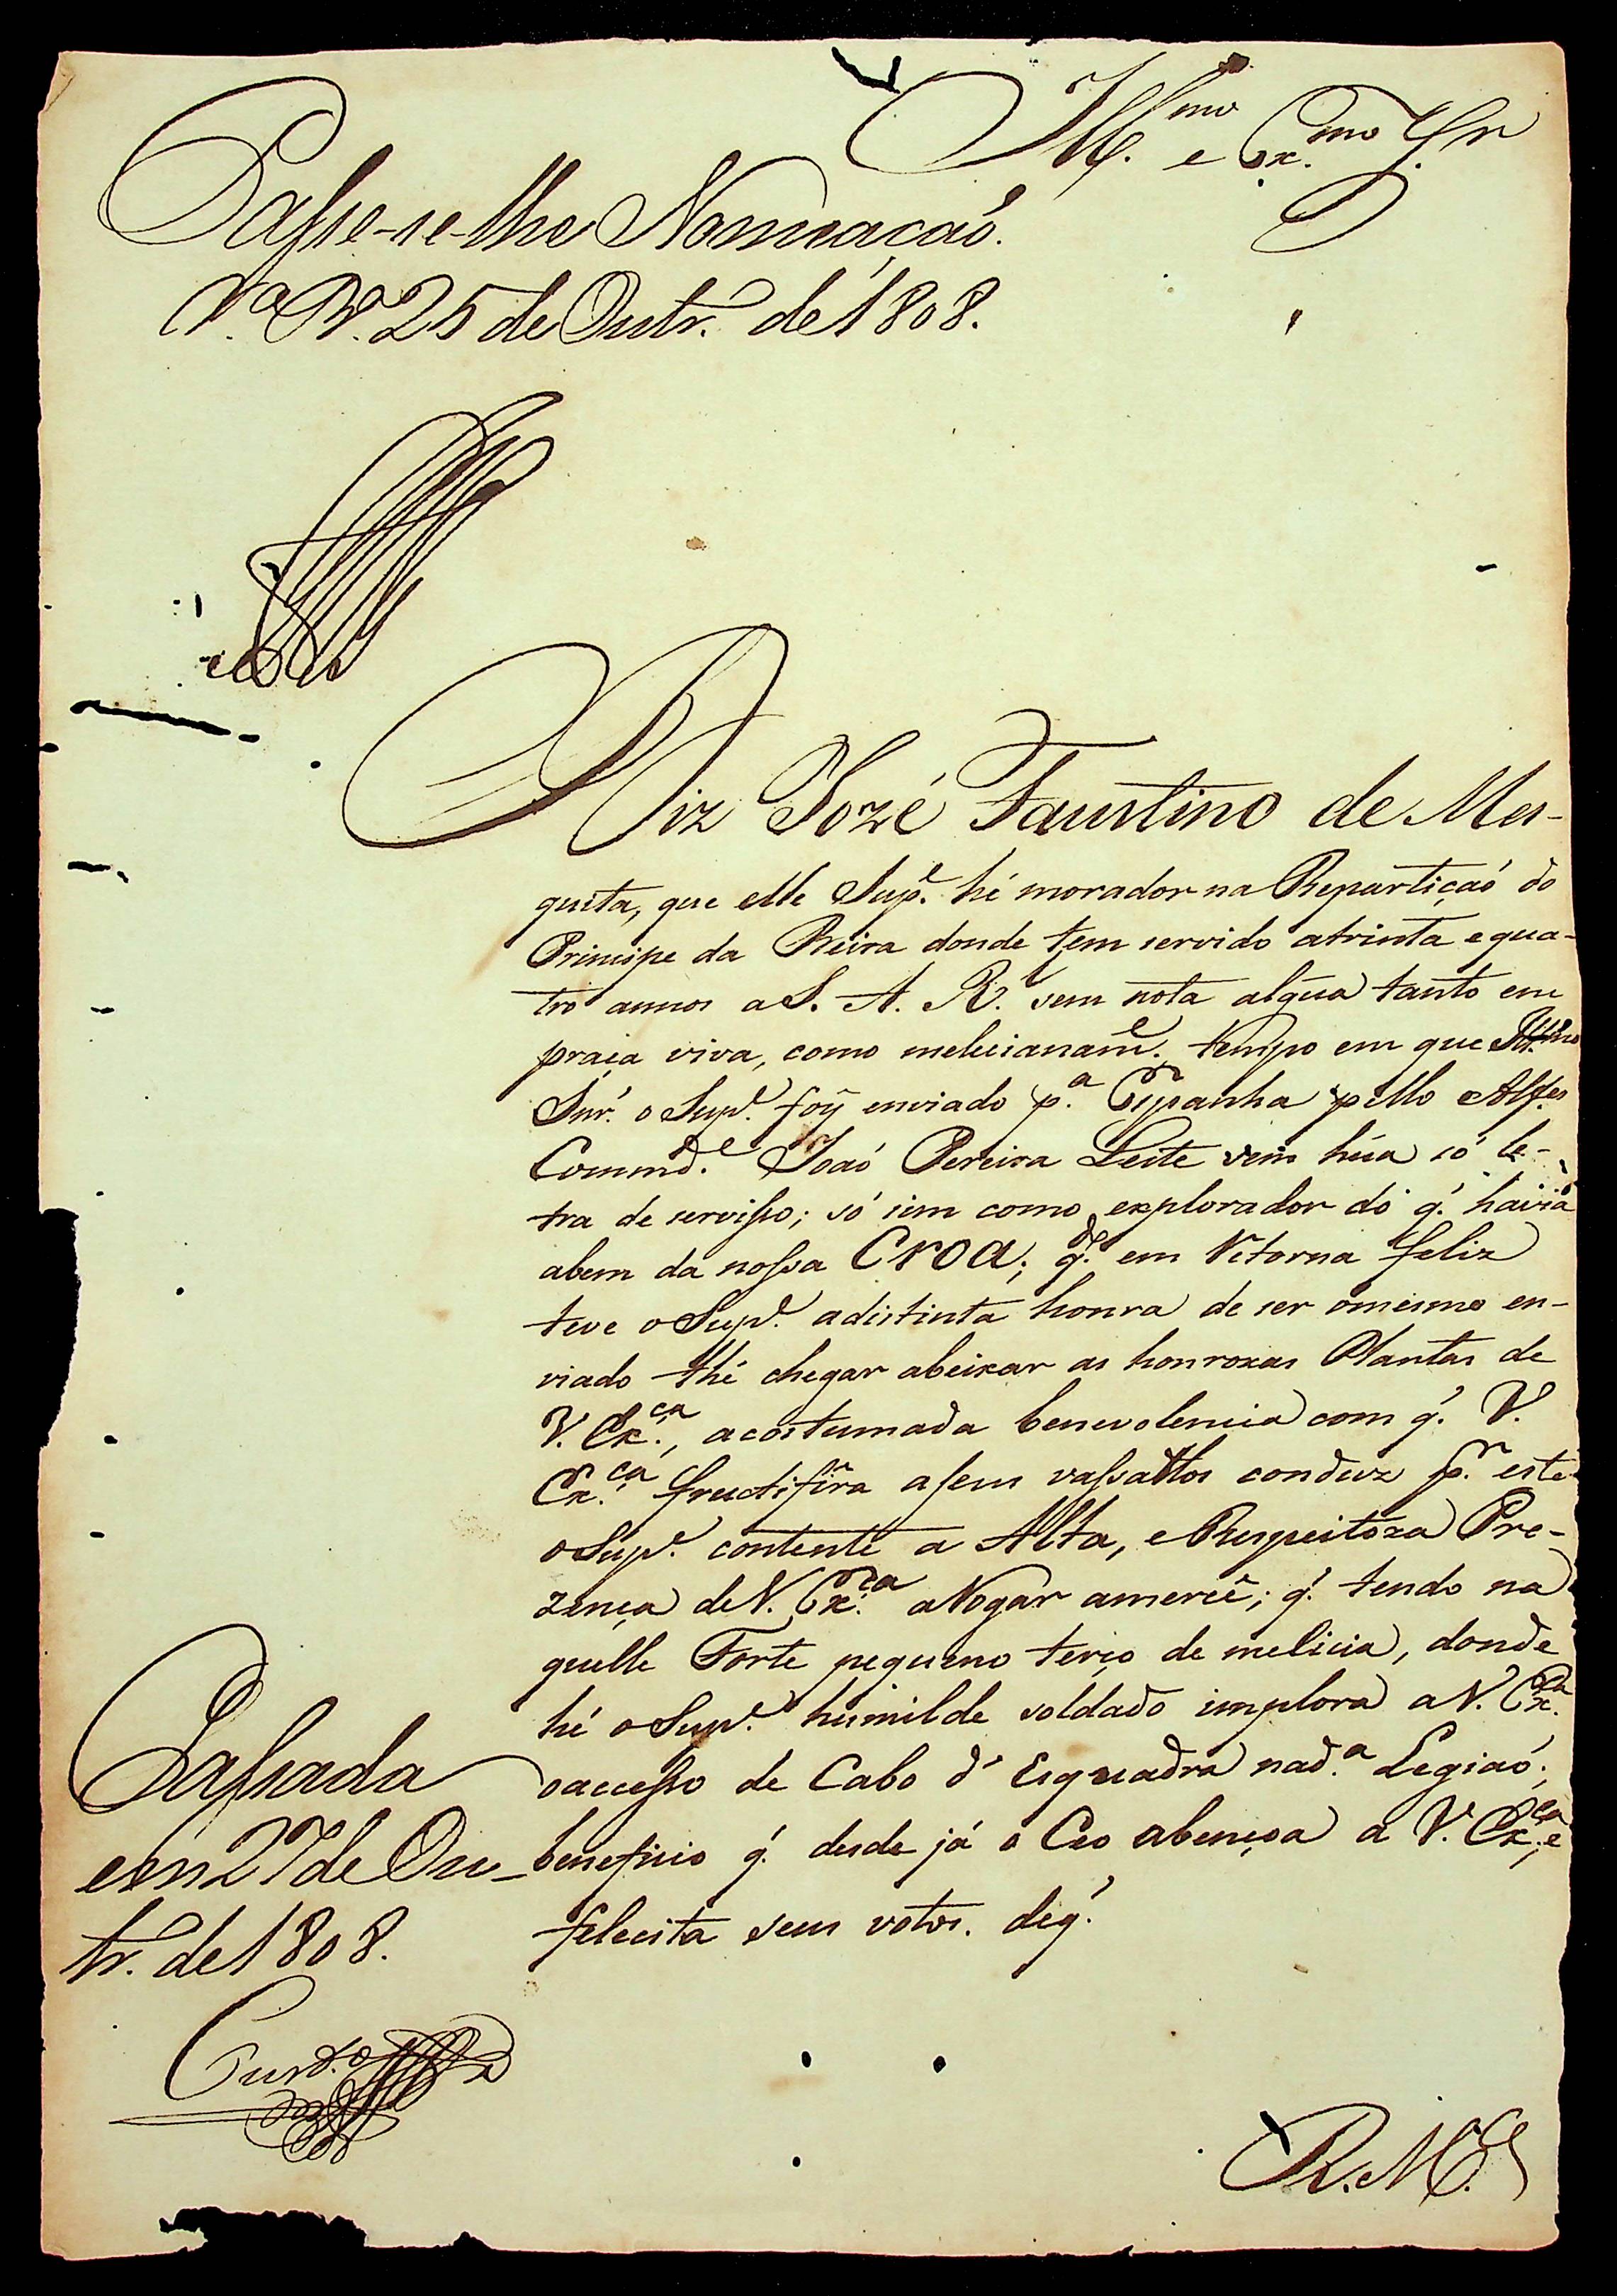 Ill.mo e Ex.mo Sn.r
Passe-se-lhe Nomeaçaõ.
V.a B.a 25 de Outr.o de 1808.
Diz Jozé Faustino de Mes-
quita, que elle Sup.e hé morador na Repartiçaó do
Principe da Beira donde tem servido atrinta e qua-
tro annos a S. A. R.l sem nota algũa tanto em
praça viva, como melicianam.e tempo em que Ill.mo
Snr. o Sup.e foÿ enviado p.a Espanha pello Alf.es
Commd.e Joaó Pereira Leite sem húa só le-
tra de servisso; só sim como explorador do q.' havia
abem da nossa Croa; q.' em Retorna feliz
teve o Sup.e adistinta honra de ser omesmo en-
viado thé chegar abeixar as honrozas Plantas de
V. Ex.ca, acostumada benevolencia com q.' V.
Ex.ca fructifira aseus vassallos conduz p.r este
o Sup.e contente a Alta, e Respeitoza Pre-
zença de V. Ex.ca a Rogar amercê; q.' tendo na
quelle Forte pequeno terço de melicia, donde
hé o Sup.e humilde soldado implora a V. Ex.ca
oaccesso de Cabo d' Esquadra nad.a Legiaó;
beneficio q.' desde já o Ceo abençoa a V. Ex.ca, e
felecita seus votos. deq.'
Passada
em 27 de Ou-
tr.o de 1808.
R. M.ce